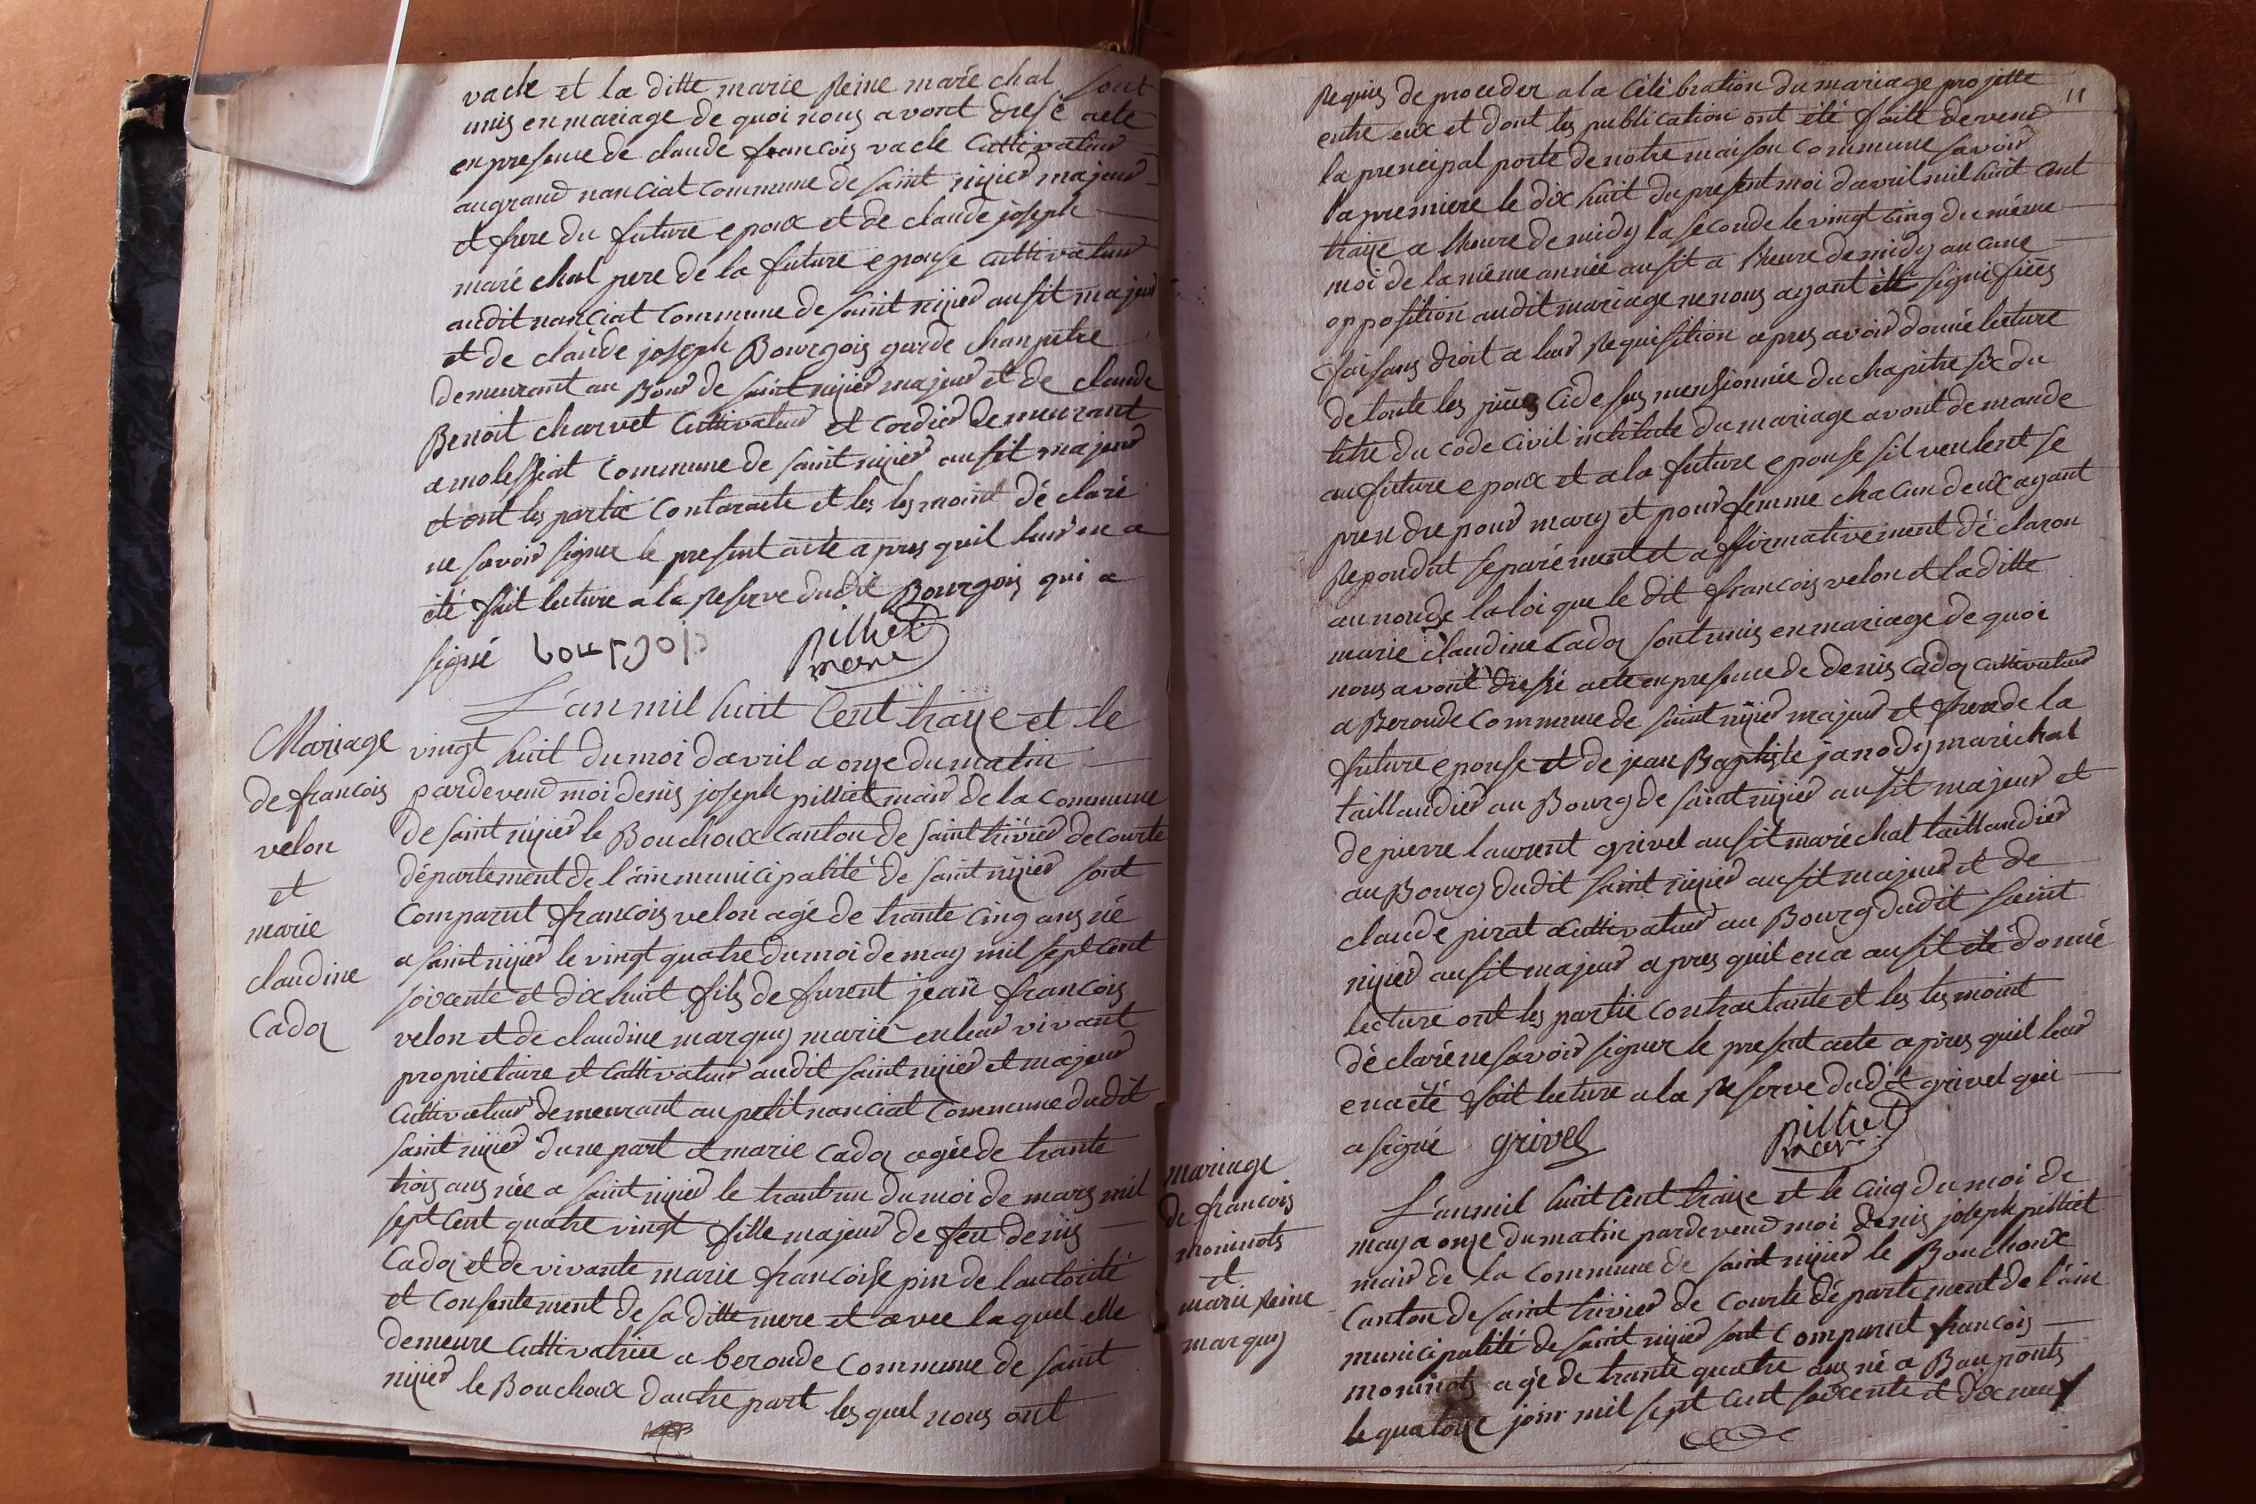 vacle et la ditte marie Reine maréchal sont
unis en mariage de quoi nous avont dresé acte
en presence de claude francois vacle Cultivateur
au grand nanciat commune de saint nizier majeur
et frere du future epoux et de claude joseph
maréchal pere de la future epouse cultivateur
audit nanciat commune de saint nizier ausit majeur
et de claude joseph Bourgois garde chanpetre
demeurant au Bour de saint nizier majeur et de claude
Benoit charvet Cultivateur et cordier demeurant
a molessiat Commune de saint nizier ausit majeur
et ont les partie Contaracte et les tesmoint déclaré
ne savoir signer le present acte apres quil leur en a
été fait lecture a la Reserve dudit Bourgois qui a
signé bourgois pilliet
maire
Mariage
de francois
velon
et
marie
claudine
Cadoz
L'an mil huit Cent traize et le
vingt huit du moi davril a onze du matin
pardevend moi denis joseph pilliet mair de la Commune
de saint nizier le Bouchoux Canton de saint trivier de Courte
département de l'ain municipalité de saint nizier sont
Comparut francois velon agé de trante cinq ans né
a saint nizier le vingt quatre du moi de may mil sept Cent
soixente et dix huit fils de furent jean francois
velon et de claudine marquy marié en leur vivant
proprietaire et Cultivateur audit saint nizier et majeur
Cultivateur demeurant au petit nanciat Commune dudit
saint nizier dune part et marie Cadoz agée de trante
trois ans née a saint nizier le trant un du moi de mars mil
sept Cent quatre vingt fille majeur de feu denis
Cadoz et de vivante marie francoise pin de lautorité
et Consentement de sa ditte mere et avec laquel elle
demeure Cultivatrice a beronde Commune de saint
nizier le Bouchoux dautre part lesquel nous ont
11
Requis de proceder a la Célébration du mariage projette
entre eux et dont les publication ont été faite devend
la prencipal porte de notre maison Commune savoir
la premiere le dix huit du present moi davril mil huit Cent
traize a lheure de midy la seconde le vingt Cinq du méme
moi de la méme année ausit a lheure de midy aucune
opposition audit mariage ne nous ayant été signifiées
faisans droit a leur Requisition apres avoir donné lecture
de toute les pieces Cidesus mensionnée du chapitre six du
titre du Code Civil intitulé du mariage avont demande
au future epoux et a la future epouse sil veulent se
prendre pour mary et pour femme chacun deux ayant
Repondut separément et affirmativement déclaron
au nonde la loi que le dit francois velon et la ditte
marie claudine Cadoz sont unis en mariage de quoi
nous avont dresié acte en presence de denis Cadoz cultivateur
a Beronde Commune de saint nizier majeur et frere de la
future epouse et de jean Baptiste janody maréchal
taillandier au Bourg de saint nizier ausit majeur et
de pierre laurent grivel ausit maréchal taillandier
au Bourg dudit saint nizier ausit majeur et de
claude pirat Cultivateur au Bourg dudit saint
nizier ausit majeur apres quil en a ausit été donné
lecture ont les partie Contractante et les tesmoint
déclaré ne savoir signer le present acte apres quil leur
en a été fait lecture a la Reserve dudit grivel qui
a signé grivel pilliet
maire
mariage
de francois
moninots
et
marie Reine
marquy
L'an mil huit Cent traize et le Cinq du moi de
may a onze du matin pardevend moi denis joseph pilliet
mair de la Commune de saint nizier le Bouchoux
Canton de saint trivier de Courte département de l'ain
municipalité de saint nizier sont Comparut francois
moninots agé de trante quatre ans né a Beauponts
le quatorze join mil sept Cent soixente et dix neuf